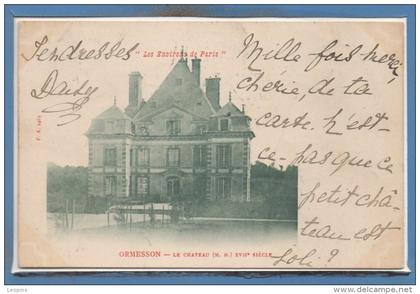 "Les Environs de Paris"
Tendresses
Daisy
Mille fois merci
chérie, de ta
carte. N'est-
ce-pas que ce
petit châ-
teau est
Joli?
ORMESSON — LE CHATEAU (M. H.) XVIIe SIÈCLE